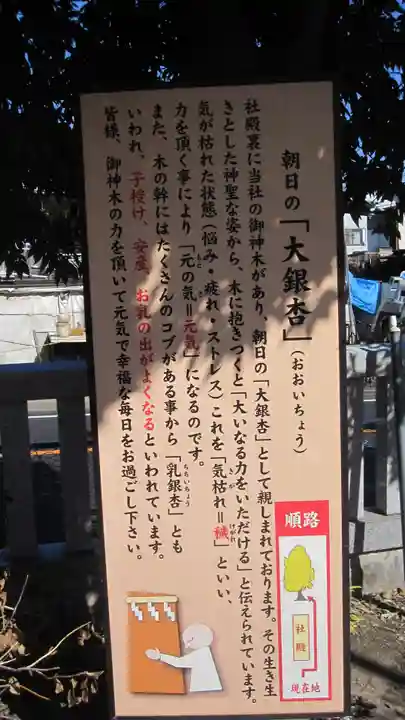 朝日の「大銀杏」(おおいちょう)
社殿裏に当社の御神木があり、朝日の「大銀杏」として親しまれております。その生き生
きとした神聖な姿から、木に抱きつくと「大いなる力をいただける」と伝えられています。
気が枯れた状態(悩み・疲れ・ストレス)これを「気枯れ=穢」といい、
きが
けがれ
力を頂く事により「元の気=元気」になるのです。
もと
き
また、木の幹にはたくさんのコブがある事から「乳銀杏」とも
ちちいちょう
いわれ、子授け、安産、お乳の出がよくなるといわれています。
皆様、御神木の力を頂いて元気で幸福な毎日をお過ごし下さい。
順路
社殿
現在地